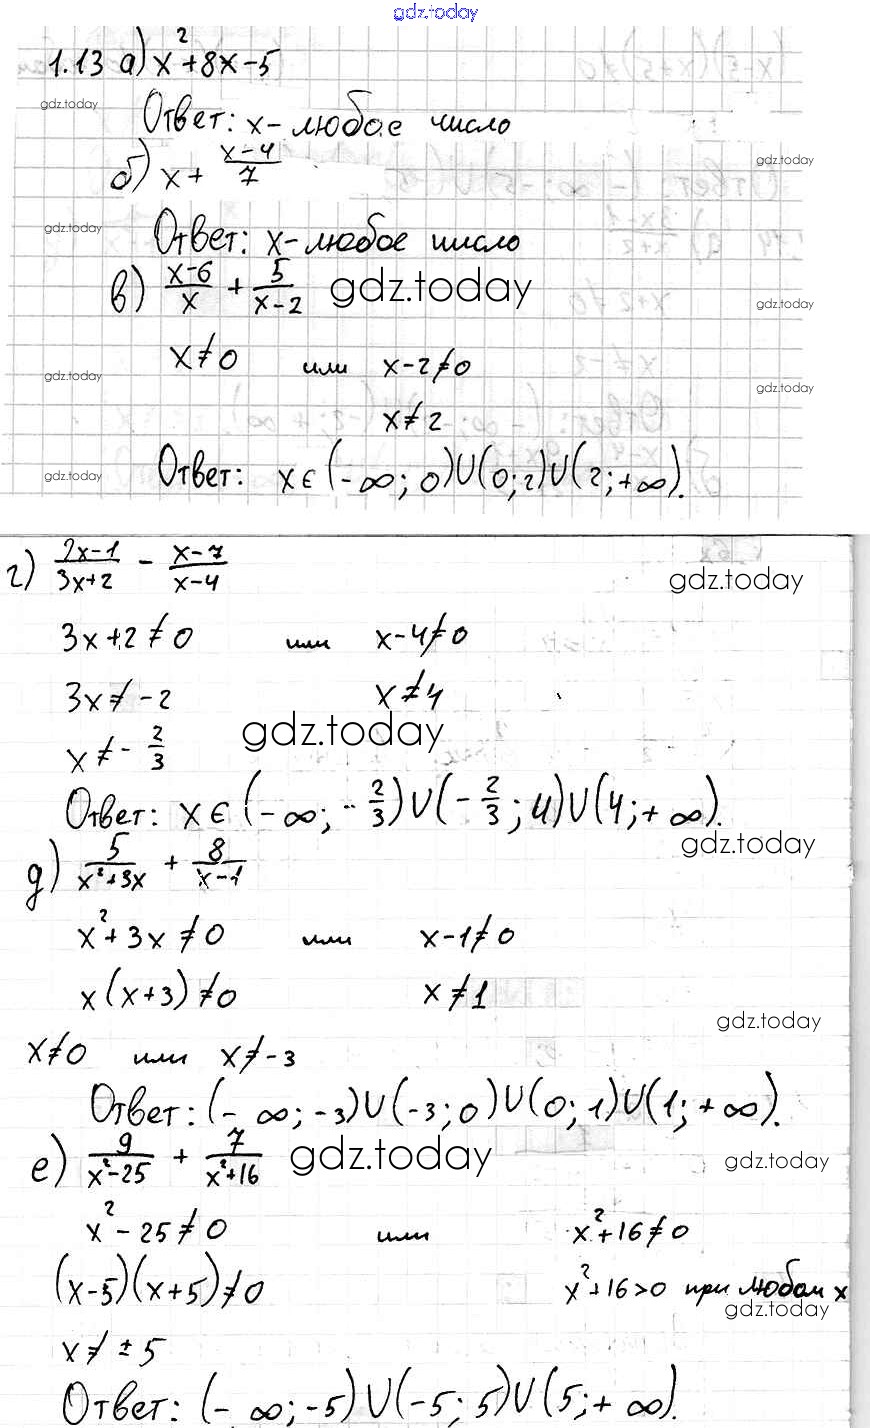 gdz.today
1.13 а) x²+8x-5
gdz.today
Ответ: x-любое число
б) x+ (x-4)/7
gdz.today
gdz.today
Ответ: x-любое число
в) (x-6)/x + 5/(x-2) gdz.today
gdz.today
x≠0 или x-2≠0
gdz.today
gdz.today
x≠2
gdz.today
Ответ: x∈(-∞;0)∪(0;2)∪(2;+∞).
г) (2x-1)/(3x+2) - (x-7)/(x-4)
gdz.today
3x+2≠0 или x-4≠0
3x≠-2 x≠4
gdz.today
x≠-2/3
Ответ: x∈(-∞;-2/3)∪(-2/3;4)∪(4;+∞).
gdz.today
д) 5/(x²+3x) + 8/(x-1)
x²+3x≠0 или x-1≠0
x(x+3)≠0 x≠1
gdz.today
x≠0 или x≠-3
Ответ: (-∞;-3)∪(-3;0)∪(0;1)∪(1;+∞).
е) 9/(x²-25) + 7/(x²+16) gdz.today
gdz.today
x²-25≠0 или x²+16≠0
(x-5)(x+5)≠0 x²+16>0 при любом x
gdz.today
x≠±5
Ответ: (-∞;-5)∪(-5;5)∪(5;+∞).